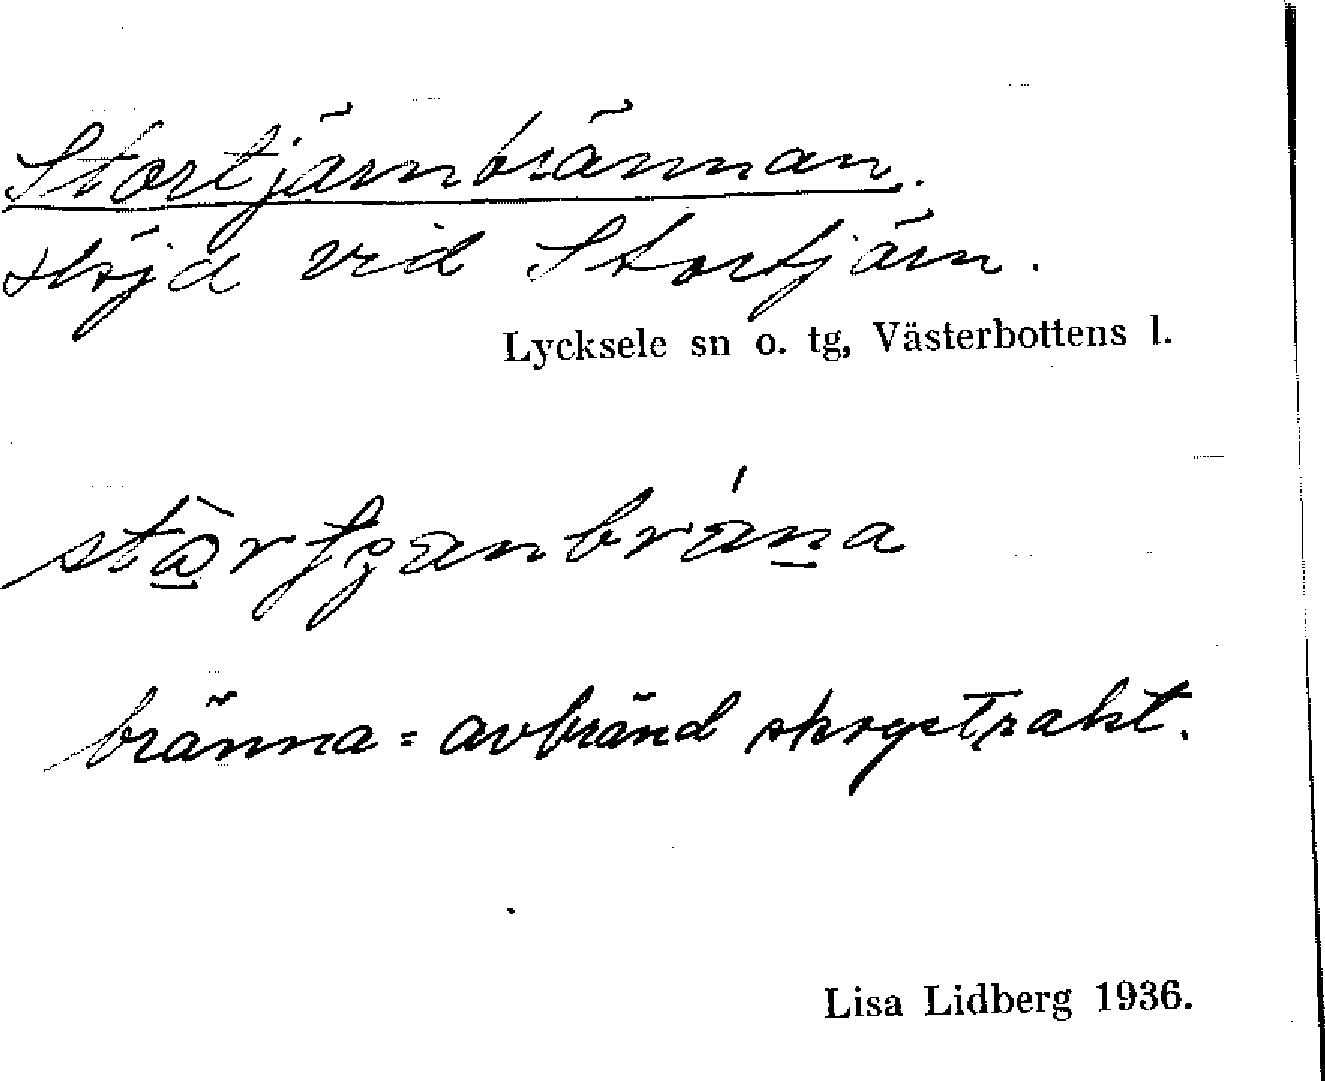 Stortjärnbrännan.
Höjd vid Stortjärn.
Lycksele sn o. tg, Västerbottens l.
bränna = avbränd skogstrakt.
Lisa Lidberg 1936.